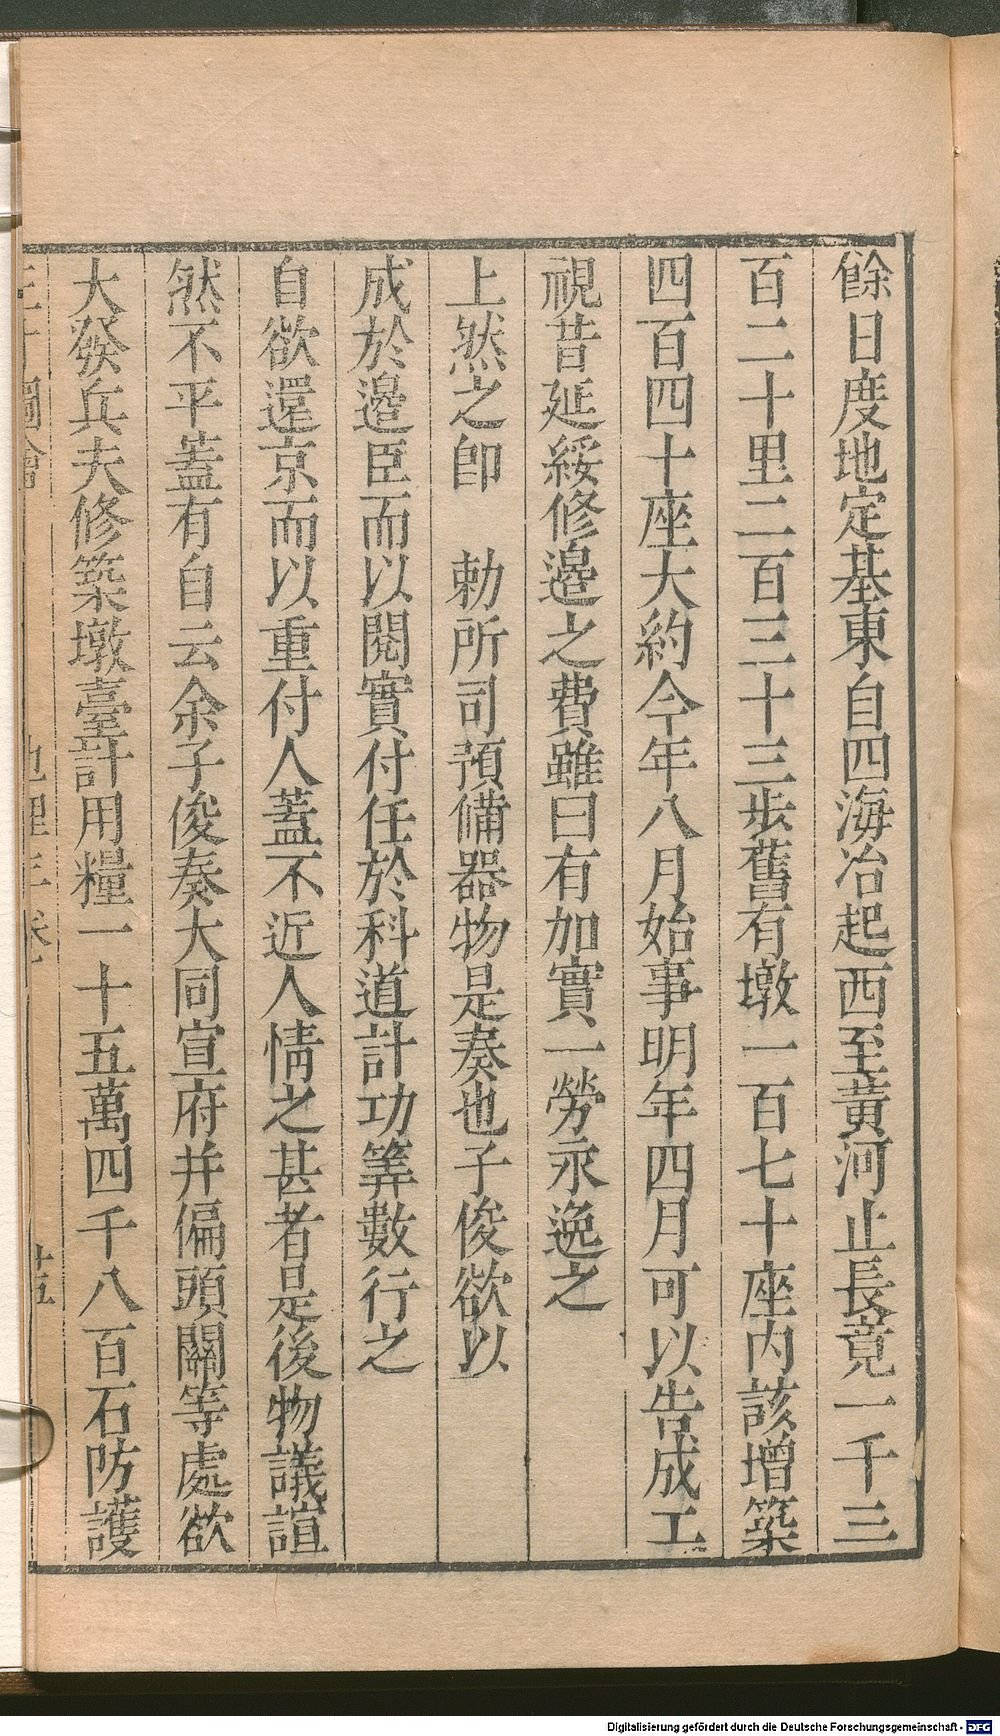 餘日度地定基東自四海冶起西至黃河止長竟一千三
百二十里二百三十三步舊有墩一百七十座內該增築
四百四十座大約今年八月始事明年四月可以告成工
視昔延綏修邊之費雖曰有加實一勞永逸之
上然之卽　勅所司預備器物是奏也子俊欲以
成於邊臣而以閱實付任於科道計功筭數行之
自欲還京而以重付人蓋不近人情之甚者是後物議諠
然不平蓋有自云余子俊奏大同宣府并偏頭關等處欲
大發兵夫修築墩臺計用糧一十五萬四千八百石防護
十五
Digitalisierung gefördert durch die Deutsche Forschungsgemeinschaft - DFG